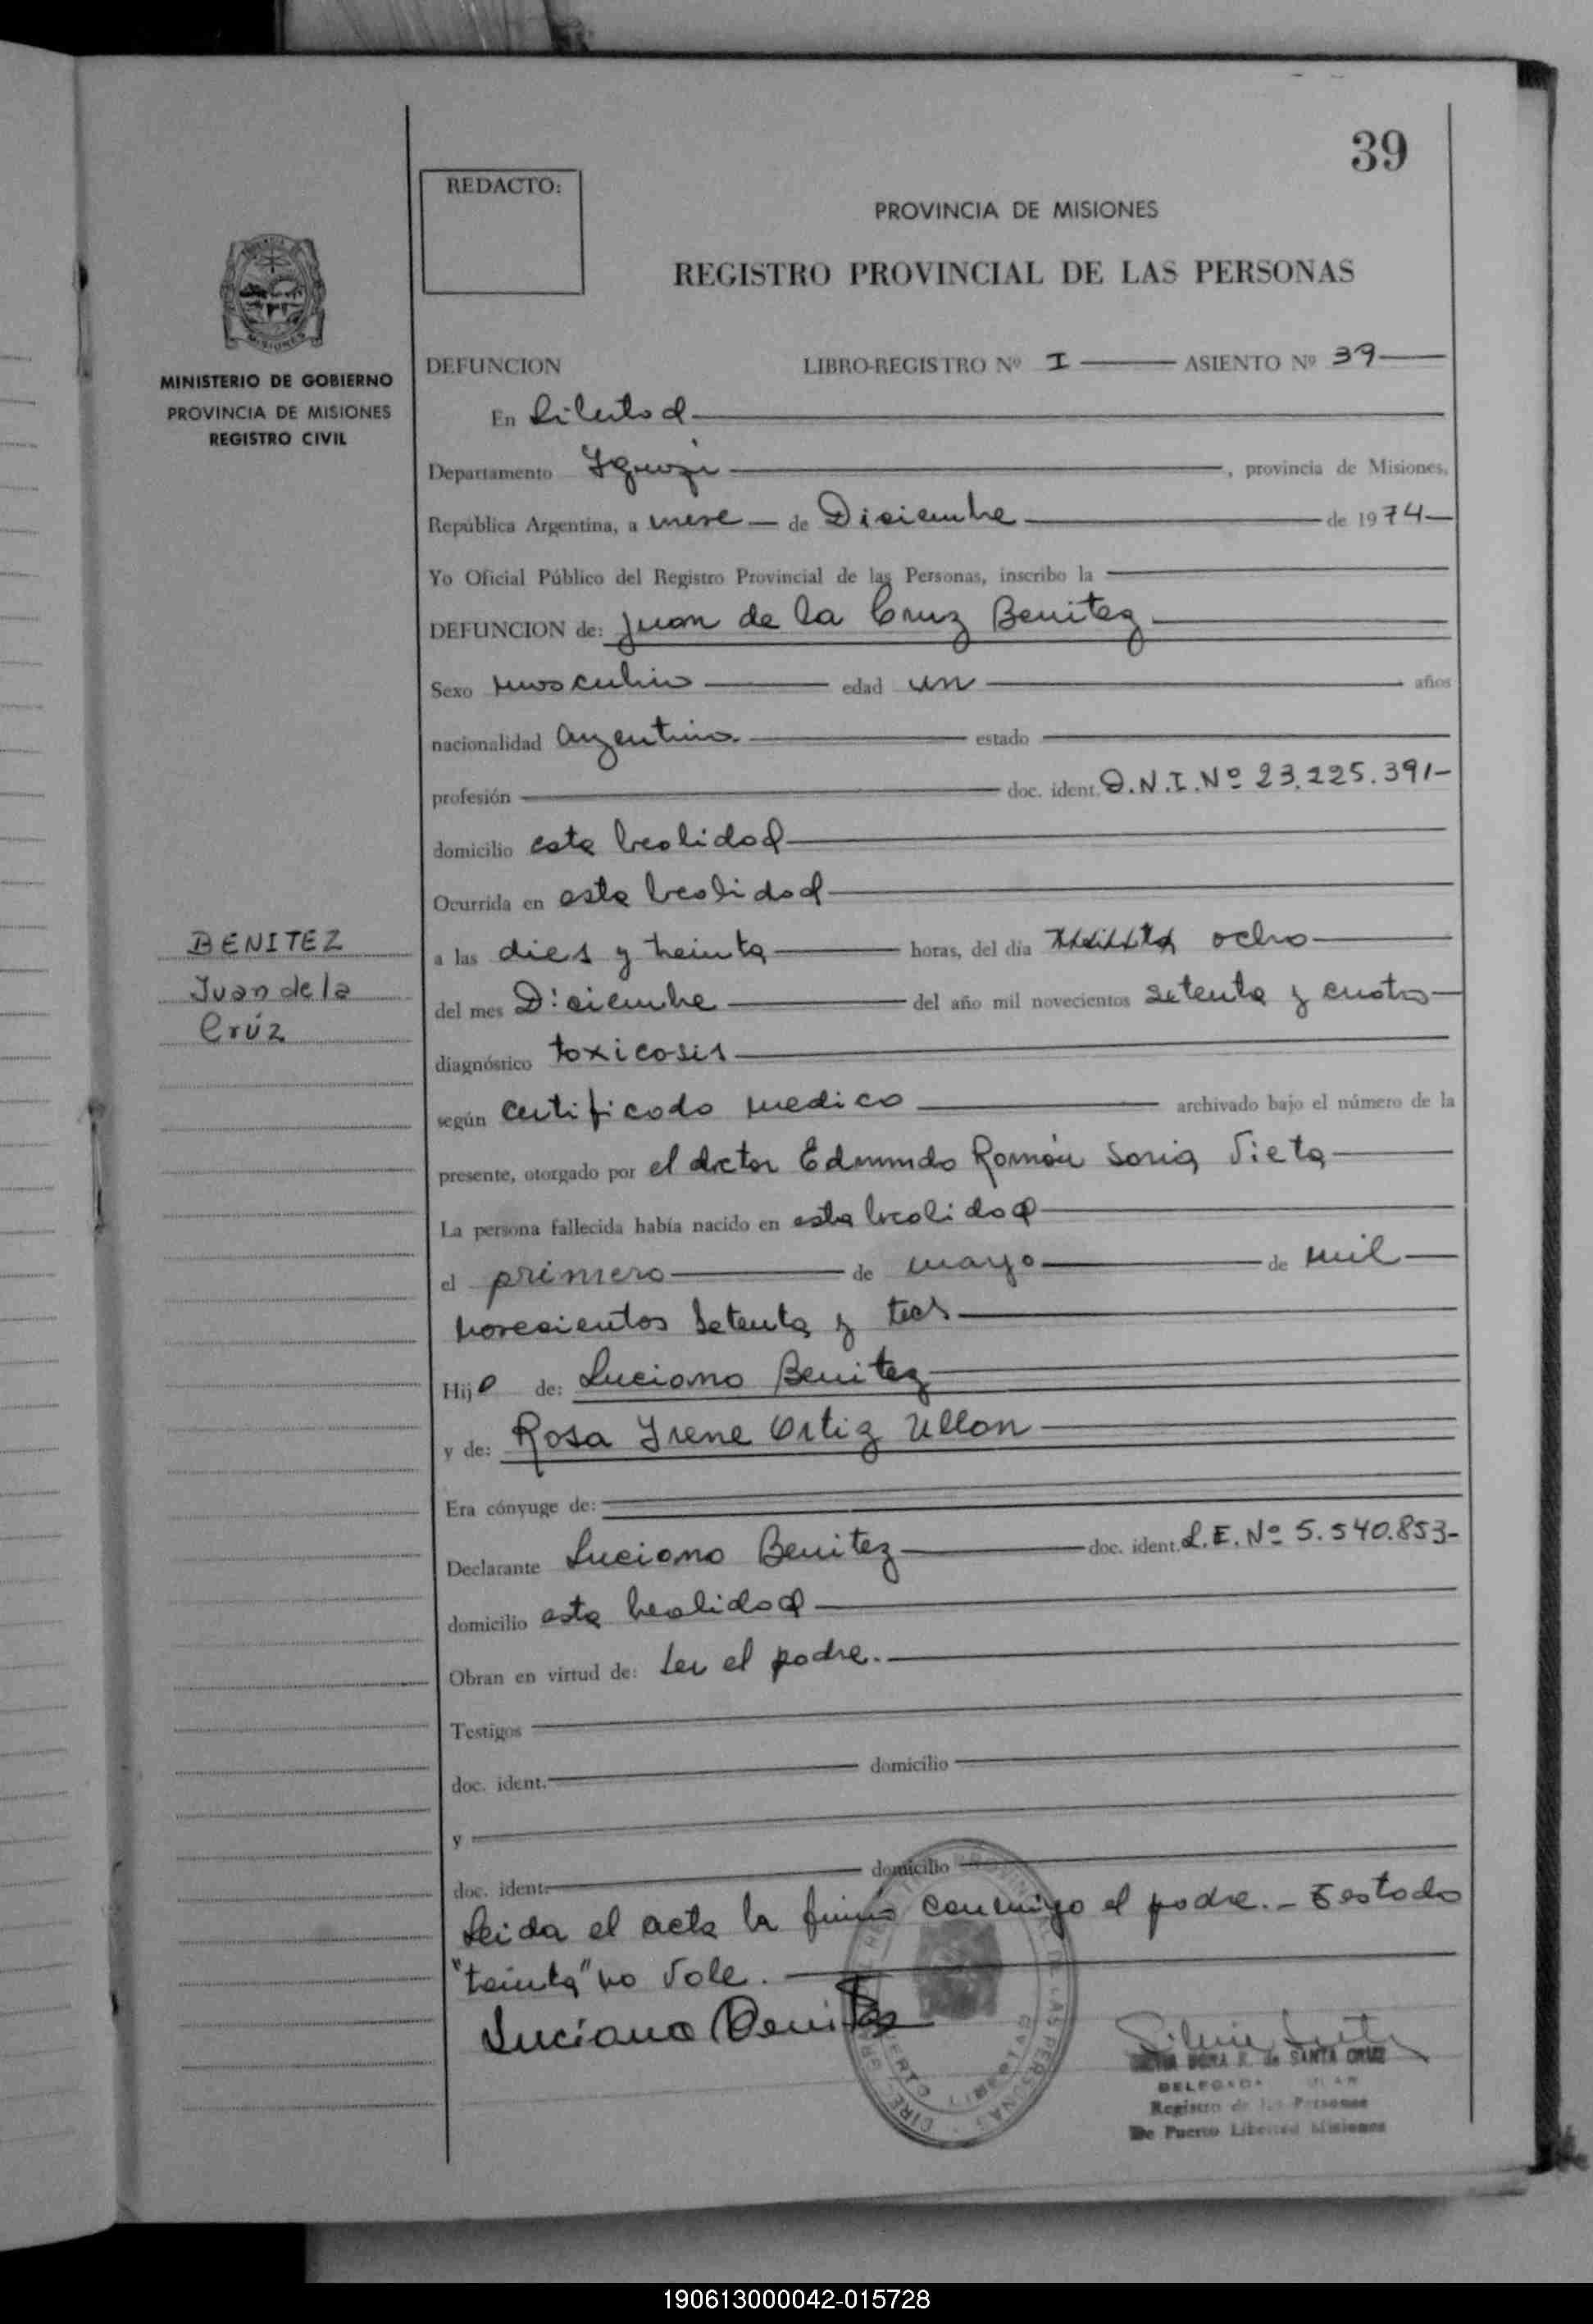 39
REDACTO:
PROVINCIA DE MISIONES
REGISTRO PROVINCIAL DE LAS PERSONAS
MISIONES
MINISTERIO DE GOBIERNO
PROVINCIA DE MISIONES
REGISTRO CIVIL
DEFUNCION LIBRO-REGISTRO Nº I ASIENTO Nº 39
En Libertad
Departamento Iguazú , provincia de Misiones,
República Argentina, a nueve de Diciembre de 1974
Yo Oficial Público del Registro Provincial de las Personas, inscribo la
DEFUNCION de: Juan de la Cruz Benitez
Sexo masculino edad un años
nacionalidad argentina estado
profesión doc. ident. D.N.I. Nº 23.225.391-
domicilio esta localidad
Ocurrida en esta localidad
BENITEZ
Juan de la
Crúz
a las dies y treinta horas, del día ocho
del mes Diciembre del año mil novecientos setenta y cuatro
diagnóstico toxicosis
según certificado medico archivado bajo el número de la
presente, otorgado por el doctor Edmundo Román Soria Vieta
La persona fallecida había nacido en esta localidad
el primero de mayo de mil
novecientos setenta y tres
Hijo de: Luciano Benitez
y de: Rosa Irene Ortiz Ullon
Era cónyuge de:
Declarante Luciano Benitez doc. ident. L.E. Nº 5.540.853-
domicilio esta localidad
Obran en virtud de: ser el padre.
Testigos
doc. ident. domicilio
y
doc. ident. domicilio
Leida el acta la firmó conmigo el padre.- Testado
"treinta" no vale.
Luciano Benitez
DORA R. de SANTA CRUZ
DELEGADA
Registro de las Personas
De Puerto Libertad Misiones
190613000042-015728